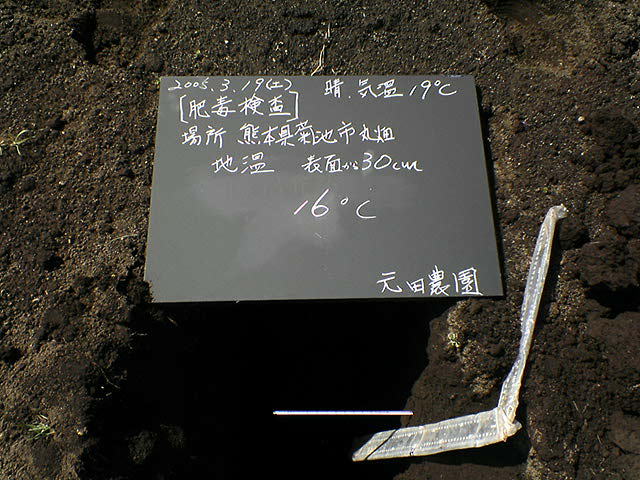 2005.3.19(土) 晴.気温19℃
[肥毒検査]
場所 熊本県菊池市丸畑
地温 表面から30cm
16℃
元田農園